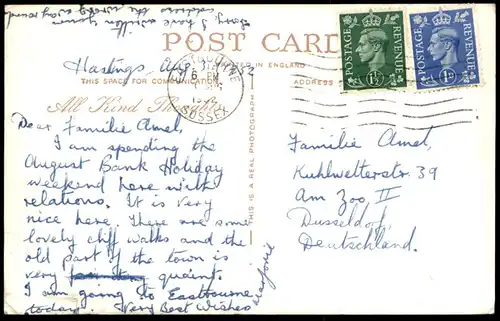 Sorry, I have written
address the wrong way
round
POST CARD
PRINTED IN ENGLAND
Hastings Aug 3rd 52
THIS SPACE FOR COMMUNICATION.
ADDRESS
All Kind Thoughts
EASTBOURNE
6 PM
SUSSEX
POSTAGE REVENUE
1½D
POSTAGE REVENUE
1D
Dear Familie Amel,
I am spending the
August Bank Holiday
weekend here with
relations. It is very
nice here. There are some
lovely cliff walks and the
old part of the town is
very quaint.
I am going to Eastbourne
today. Very Best Wishes
Marjorie
THIS IS A REAL PHOTOGRAPH
Familie Amel,
Kuhlwetterstr 39
Am Zoo II
Dusseldorf,
Deutschland.